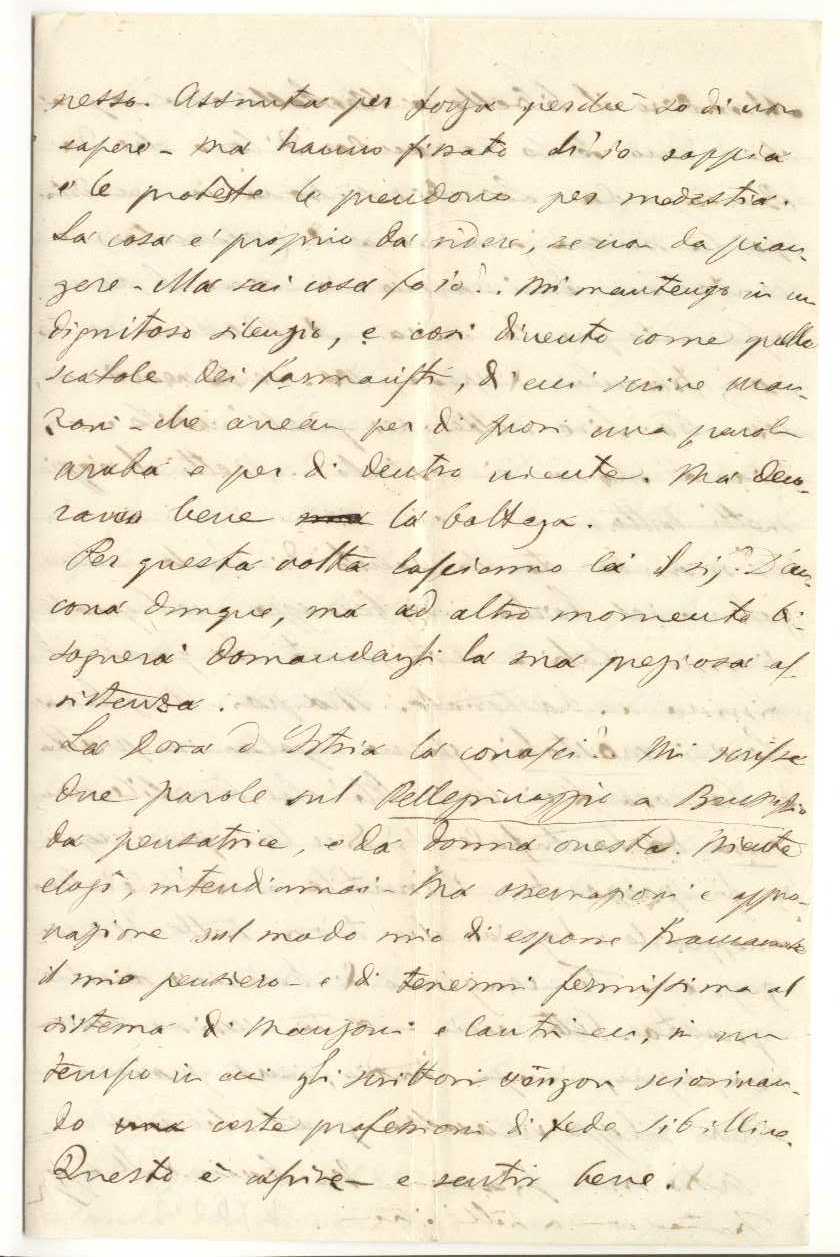 nesso. Assunta per forza perchè so di non
sapere - Ma hanno fissato ch'io sappia
e le proteste le prendono per modestia.
La cosa è proprio da ridere, se non da pian-
gere - Ma sai cosa fo io? . Mi mantengo in un
dignitoso silenzio, e così divento come quelle
scatole dei farmacisti, di cui scrive Man-
zoni - che avean per di fuori una parola
araba e per di dentro niente. Ma deco-
ravan bene la bottega.
Per questa volta lasciamo là il sig.r D'An-
cona dunque, ma ad altro momento bi-
sognerà domandargli la sua preziosa as-
sistenza.
La Dora d'Istria la conosci? Mi scrisse
due parole sul Pellegrinaggio a
da pensatrice, e da donna onesta. Niente
elogî, intendiamoci - Ma osservazioni e appro-
vazione sul modo mio di esporre francamente
il mio pensiero - e di tenermi fermissima al
sistema di Manzoni e , in un
tempo in cui gli scrittori vengon sciorinan-
do certe professioni di fede sibilline.
Questo è capire - e sentir bene.